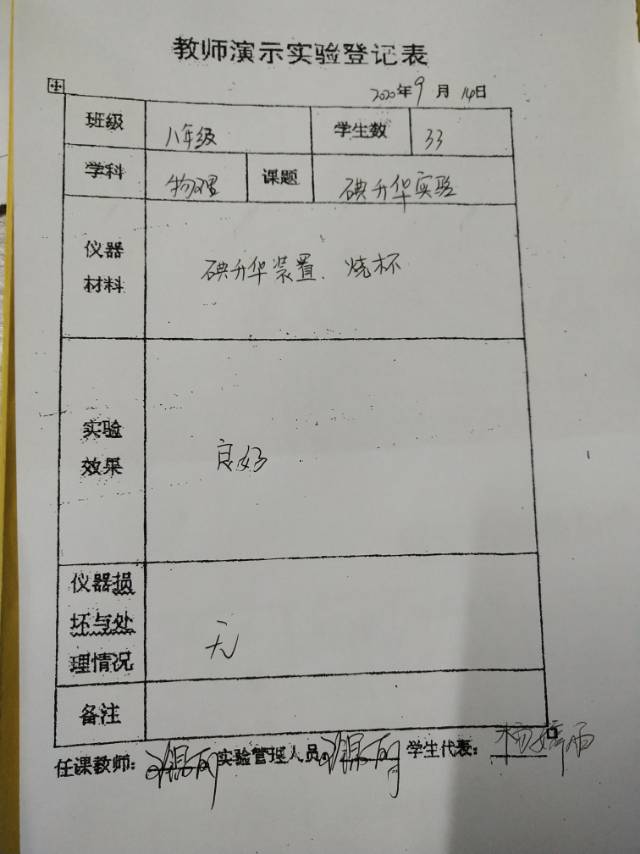 教师演示实验登记表
2020年9月14日
班级 八年级 学生数 33
学科 物理 课题 碘升华实验
仪器材料 碘升华装置、烧杯
实验效果 良好
仪器损坏与处理情况 无
备注
任课教师: 实验管理人员: 学生代表: